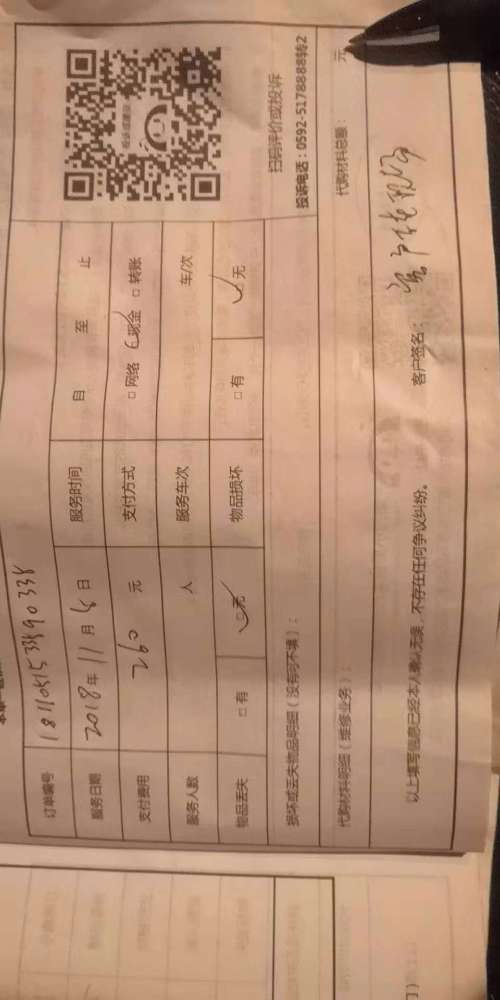 订单编号 1811051533990338
服务日期 2018年11月5日 服务时间 自 至 止
支付费用 260 元 支付方式 □ 网络 □ 现金 □ 转账
服务人数 人 服务车次 车/次
物品丢失 □ 有 □ 无 物品损坏 □ 有 □ 无
扫码评价或投诉
损坏或丢失物品明细（没有可不填）： 投诉电话：0592-5178888转2
代购材料明细（维修业务）： 代购材料总额： 元
以上填写信息已经本人确认无误，不存在任何争议纠纷。 客户签名：